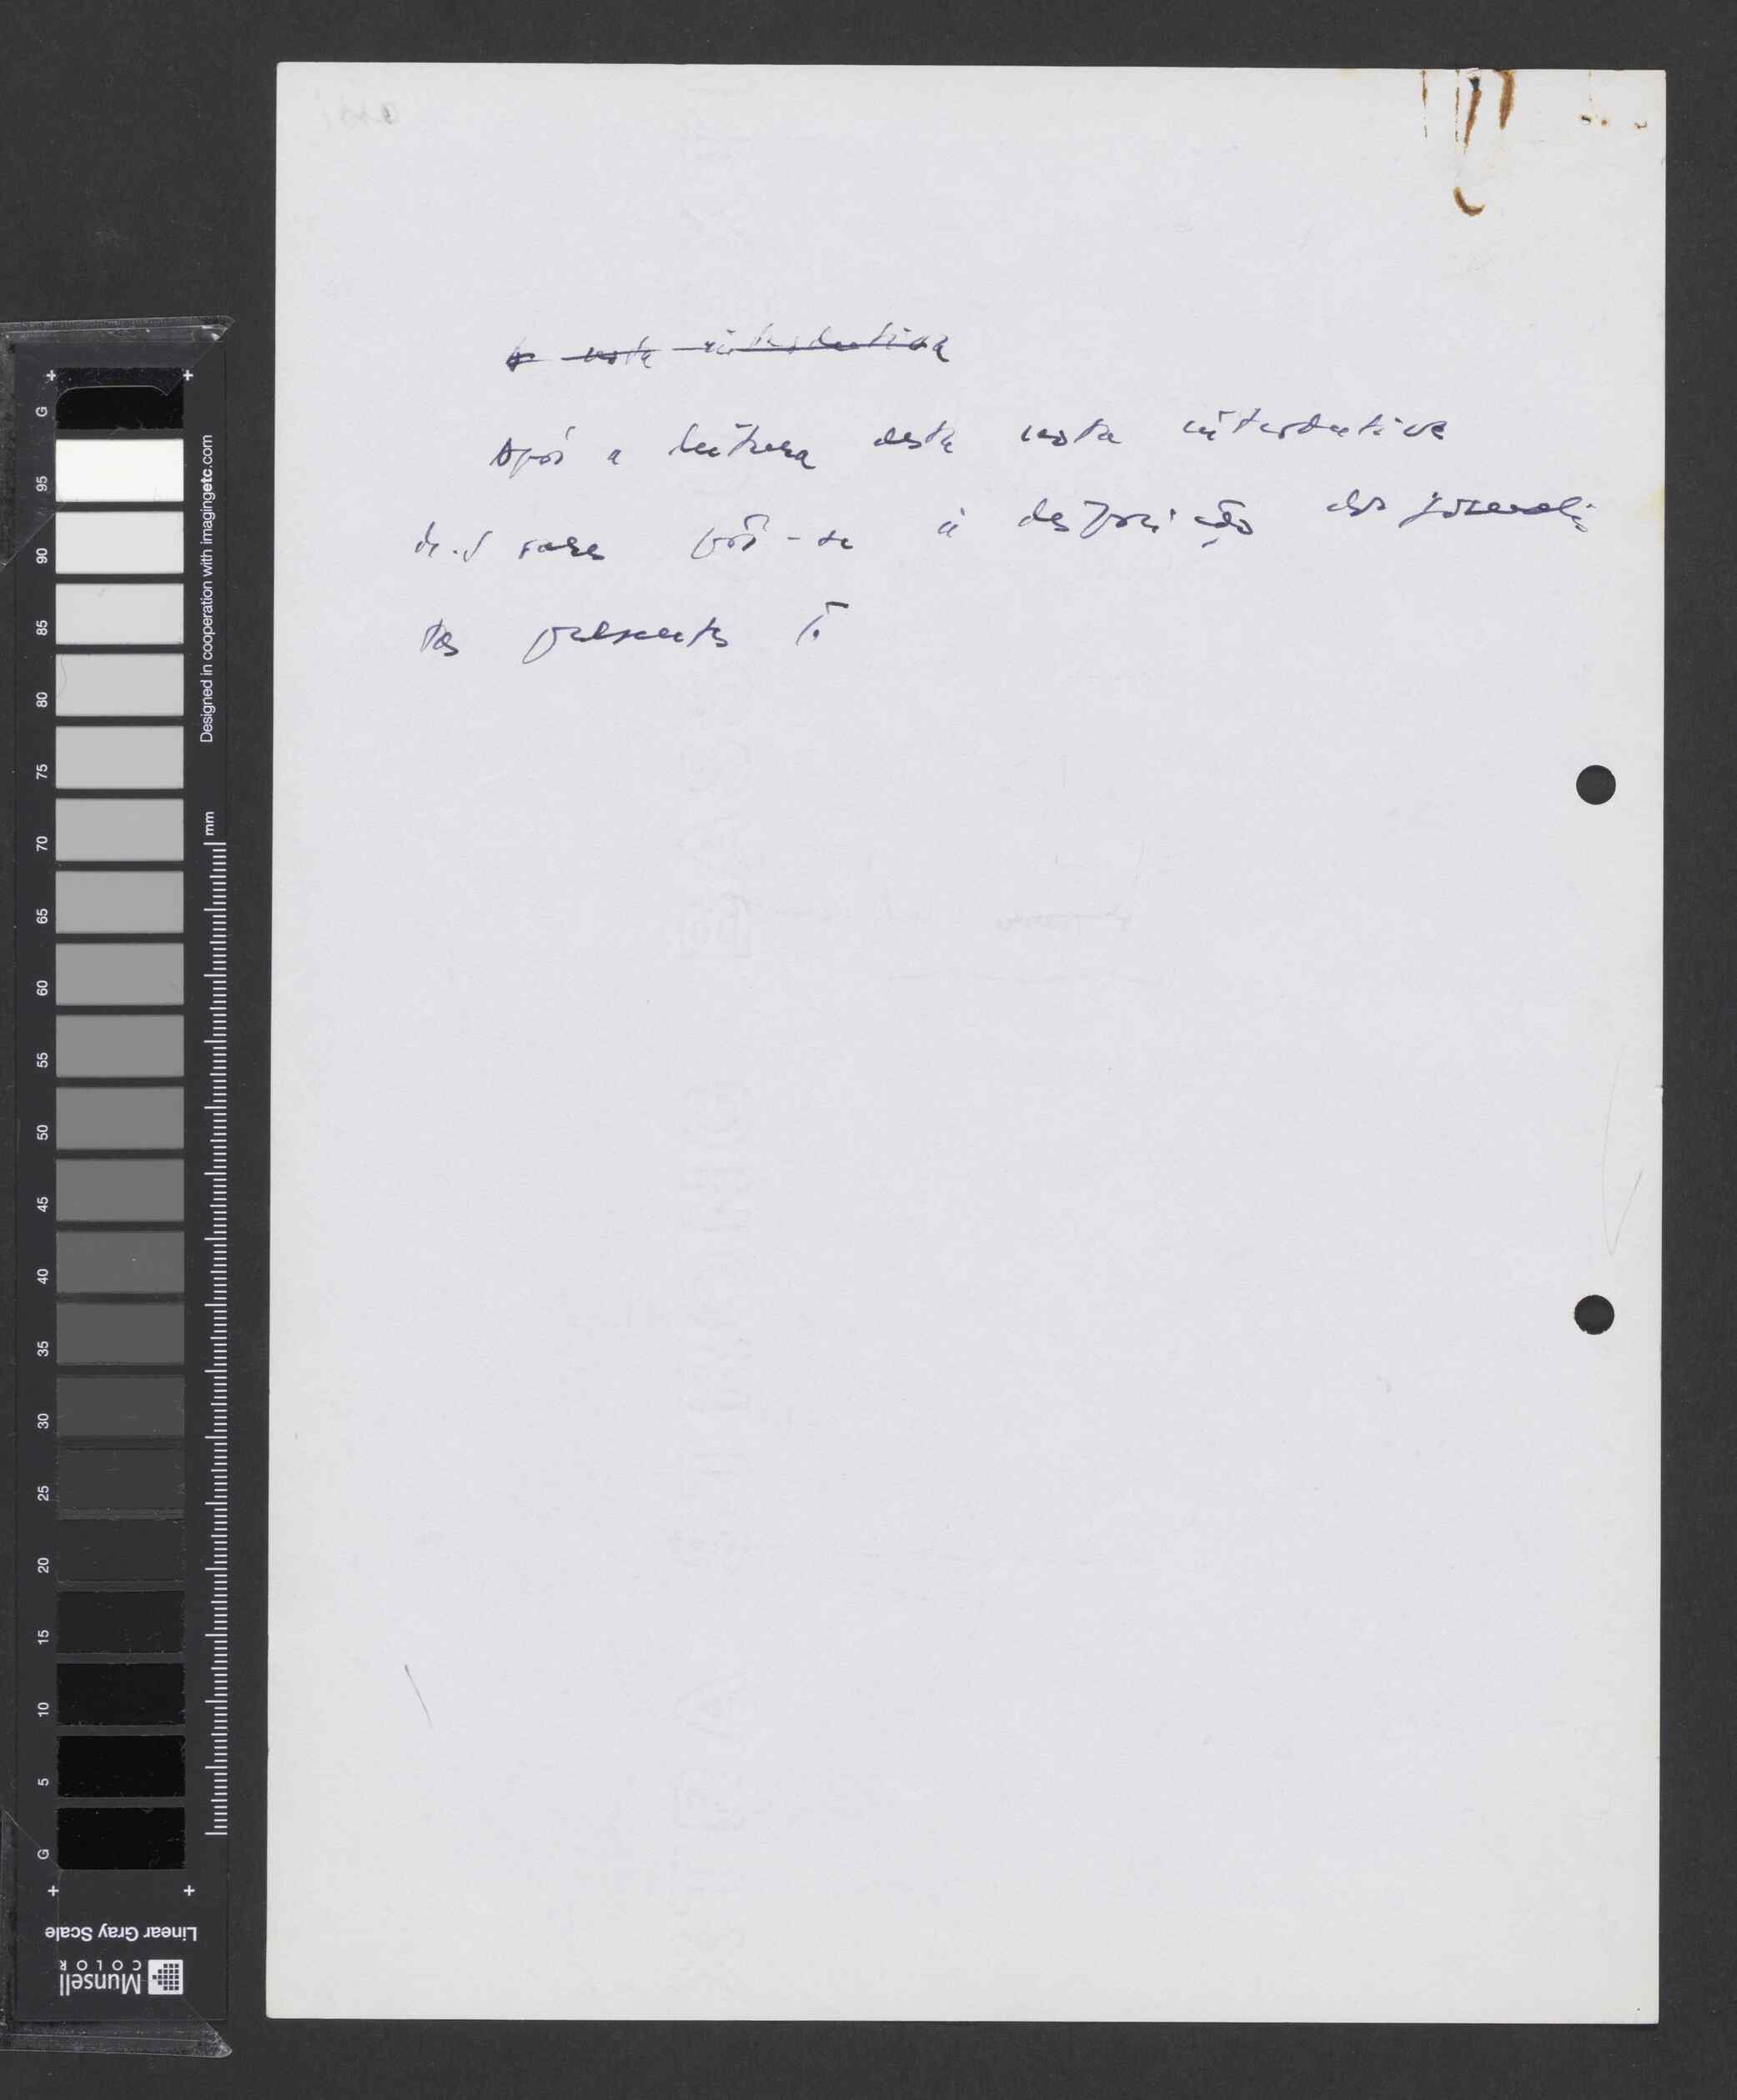 A nota introdutiva
Após a leitura desta nota introdutiva
pôs-se à disposição dos jornalis
tas presentes
G 95 90 85 80 75 70 65 60 55 50 45 40 35 30 25 20 15 10 5 G
Designed in cooperation with imagingetc.com
mm
Linear Gray Scale
Munsell
COLOR